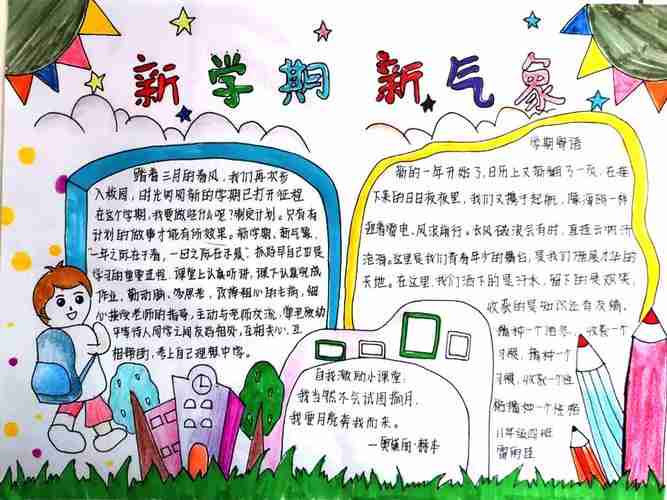 新学期 新气象
踏着三月的春风,我们再次步
入校园,时光叩开新的学期已打开征程
在这个学期,我要做些什么呢?制定计划。只有有
计划的做事才能有所效果。新学期、新气象,
一年之际在于春,一日之际在于晨
学习的重要过程,课堂上认真听讲,课下认真完成
作业,勤动脑,多思考,改掉粗心的毛病,细
心接收老师的指导,主动与老师交流,
平等待人同学之间友好相处,在相关心,互
相帮助,考上自己理想中学。
自我激励小课堂:
我当然不会试图摘月,
我要月亮奔我而来。
—奥黛丽·赫本
学期寄语
新的一年开始了,日历上又新翻了一页,在接
下来的日日夜夜里,我们又携手起航,像海鸥一样
迎着雷电、风浪前行。长风破浪会有时,直挂云帆济
沧海。这里是我们青春年少的舞台,是我们施展才华的
天地。在这里,我们洒下的是汗水,留下的是欢笑,
收获的是知识还有友情。
播种一个 收获一个
习惯,播种一个
习惯,收获一个性
格播种一个性格
八年级四班
雷雨佳